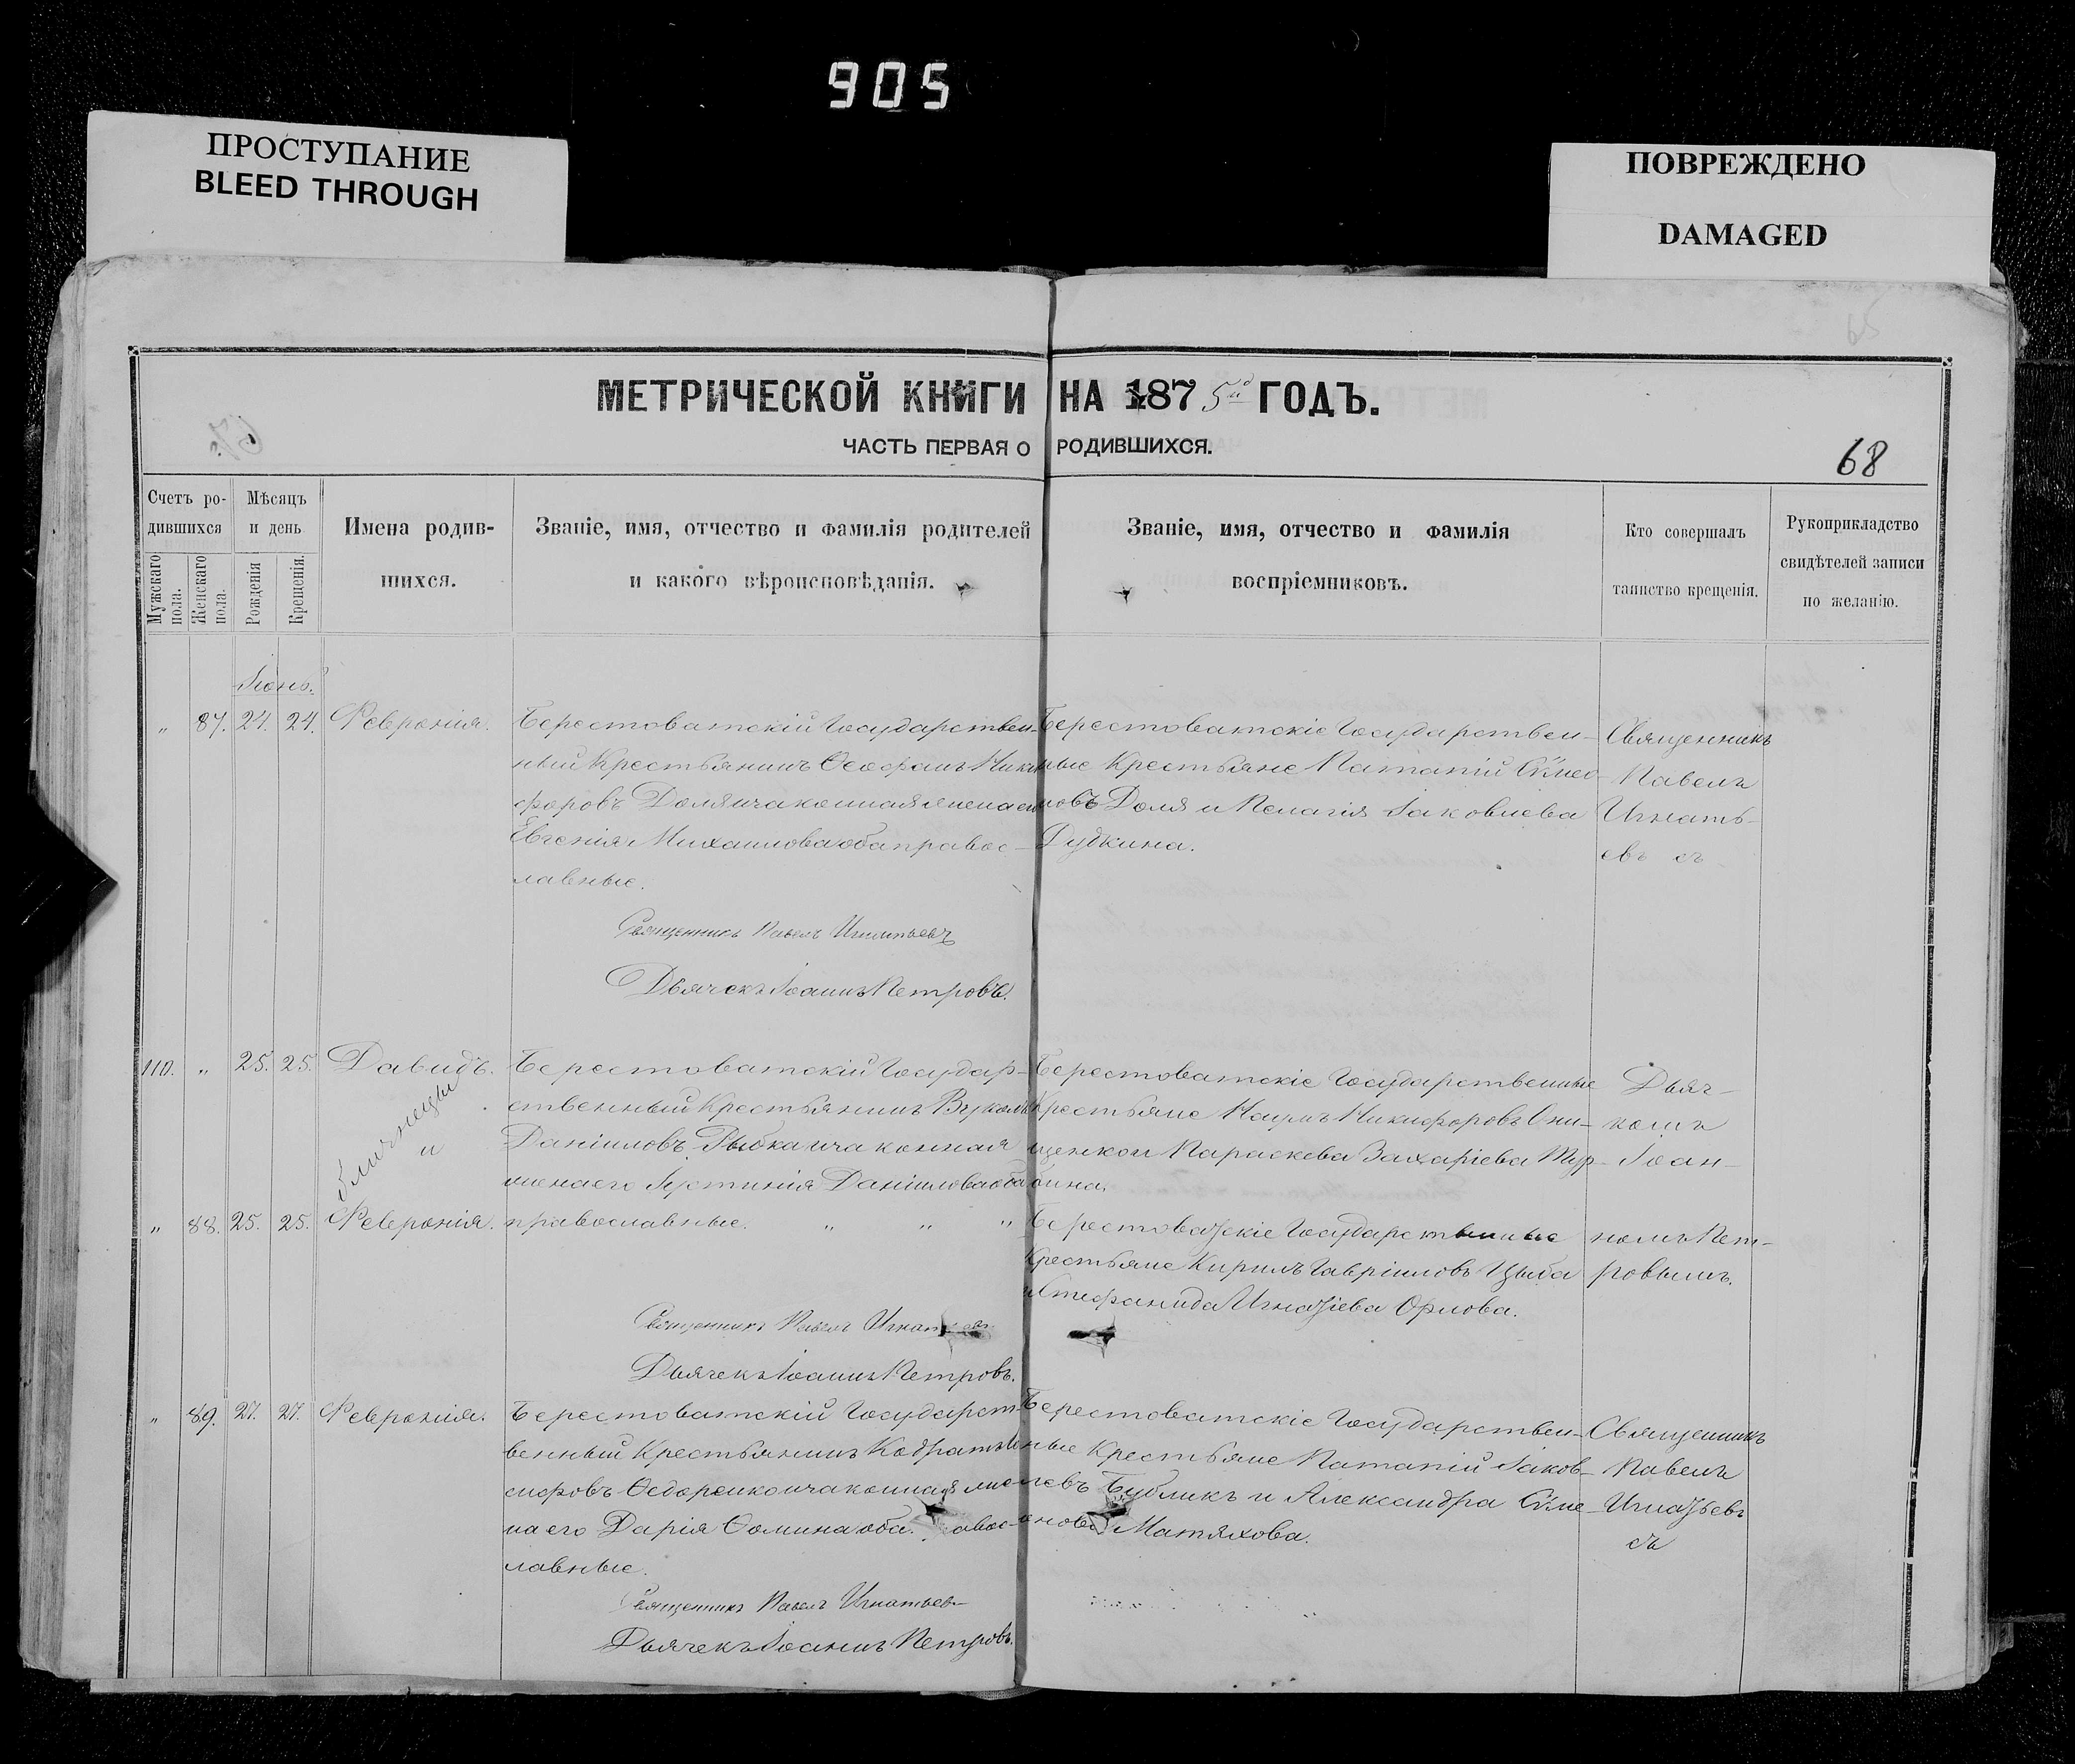 905
ПРОСТУПАНИЕ
BLEED THROUGH
ПОВРЕЖДЕНО
DAMAGED
МЕТРИЧЕСКОЙ КНИГИ НА 1875й ГОДЪ.
ЧАСТЬ ПЕРВАЯ О РОДИВШИХСЯ.
68
Счетъ ро-
дившихся
Мужскаго пола.
Женскаго пола.
Мѣсяцъ
и день
Рожденія
Крещенія.
Имена родив-
шихся.
Званіе, имя, отчество и фамилія родителей
и какого вѣроисповѣданія.
Званіе, имя, отчество и фамилія
воспріемниковъ.
Кто совершалъ
таинство крещенія.
Рукоприкладство
свидѣтелей записи
по желанію.
Іюнь.
" 87. 24. 24. Февронія.
Берестоватскій Государствен-
ный Крестьянинъ Ѳеофанъ Ники
форовъ Доля и законная жена его
Евгенія Михаилова оба правос-
лавные.
Священникъ Павелъ Игнатьевъ
Дьячекъ Іоаннъ Петровъ.
Берестоватскіе Государствен-
ные Крестьяне Патапій Сѵмео
новъ Доля и Пелагія Іаковлева
Дудкина.
Священникъ
Павелъ
Игнать-
евъ съ
110. " 25. 25. Давидъ.
близнецы
и
" 88. 25. 25. Феврoнія.
Берестоватскій Государ-
ственный Крестьянинъ Вуколъ
Даніиловъ Рыбка и законная
жена его Іустинія Даніилова оба
православные. " " "
Священникъ Павелъ
Дьячекъ Іоаннъ Петровъ.
Берестоватскіе Государственные
Крестьяне Наумъ Никифоровъ Они-
щенко и Параскева Захаріева Тур-
бина.
Берестоватскіе Государственные
Крестьяне Кирилъ Гавріиловъ Цыба
и Стефанида Игнатіева Орлова.
Дьяч-
комъ
Іоан-
номъ Пет-
ровымъ.
" 89. 27. 27. Февронія.
Берестоватскій Государст-
венный Крестьянинъ Кодратъ
сифовъ Ѳедоренко и законная же
на его Дарія Ѳомина оба авос-
лавные.
Священникъ Павелъ Игнатьевъ
Дьячекъ Іоаннъ Петровъ.
Берестоватскіе Государствен-
ные Крестьяне Патапій Іаков-
левъ Бубликъ и Александра Сѵме-
онова Матяхова.
Священникъ
Павелъ
Игнатьевъ
съ